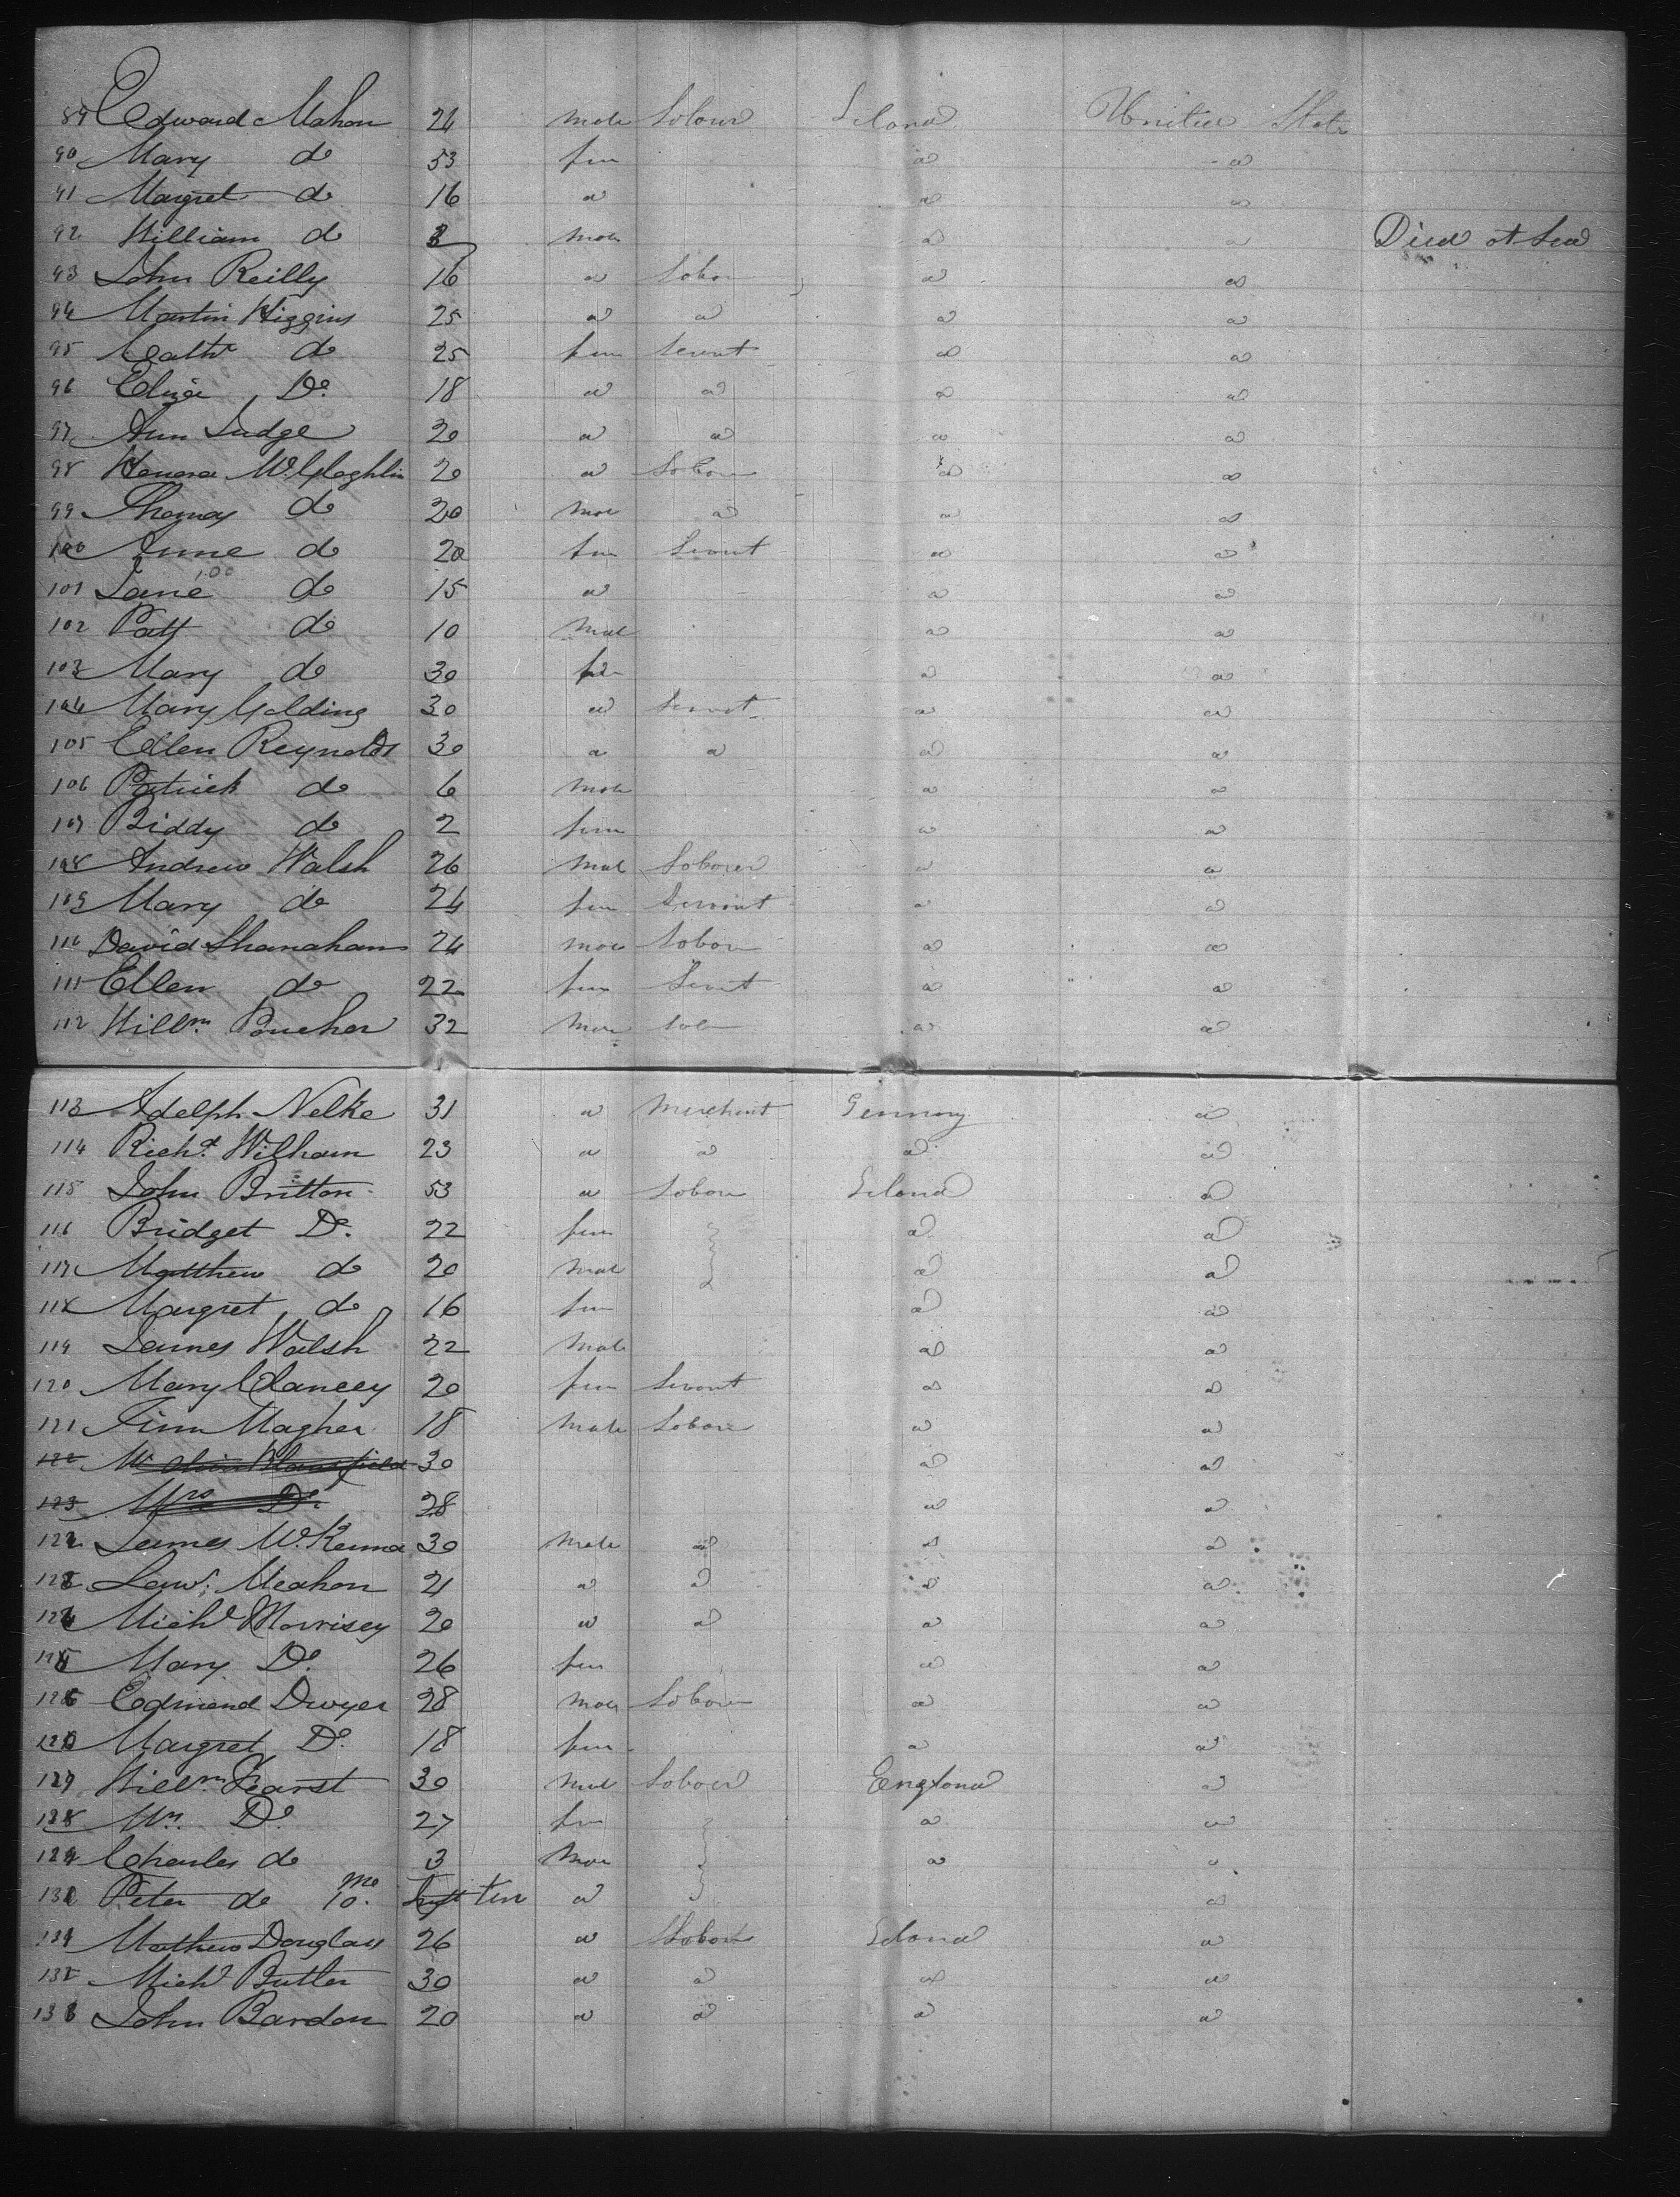 89 Edward Mahon 24 male Labour Ireland United State
90 Mary do 53 fem do do
91 Margret do 16 do do do
92 William do male do do Died at Sea
93 John Reilly 16 do Labour do do
94 Martin Higgins 25 do do do do
95 Cathe do 25 fem Servt do do
96 Eliza Do. 18 do do do do
97 Ann Judge 20 do do do do
98 Honora McGloghlin 20 do Labour do do
99 Thomas do 20 male do do do
100 Anne do 20 fem Servt do do
101 Jane do 15 do do do
102 Patt do 10 male do do
103 Mary do 30 fem do do
104 Mary Golding 30 do Servt do do
105 Ellen Reynolds 30 do do do do
106 Patrick do 6 male do do
107 Biddy do 2 fem do do
108 Andrew Walsh 26 male Labourer do do
109 Mary do 24 fem Servant do do
110 David Shanahan 24 male Labour do do
111 Ellen do 22 fem Servt do do
112 Willm. Boucher 32 male Lab do do
113 Adolph Nelke 31 do Merchant Germany do
114 Richd. Wilham 23 do do do do
115 John Britton 53 do Labour Ireland do
116 Bridget Do. 22 fem do do
117 Matthew do 20 male do do
118 Margret do 16 fem do do
119 James Walsh 22 male do do
120 Mary Clancey 20 fem Servant do do
121 Finn Magher 18 male Labour do do
122 30 do do
123 Mrs Do. 28 do do
122 James McKenna 30 male do do do
123 Law. Meahon 21 do do do do
124 Michl Morrisey 20 do do do do
125 Mary Do. 26 fem do do
126 Edmond Dwyer 28 male Labour do do
Margret Do. 18 fem do do
127 Willm. Hearst 30 male Labour England do
128 Mrs. Do. 27 fem do do
129 Charles do 3 male do do
130 Peter do 10. mo ten do do
131 Mathew Douglass 26 do Labour Ireland do
132 Michl Butler 30 do do do do
133 John Bardon 20 do do do do